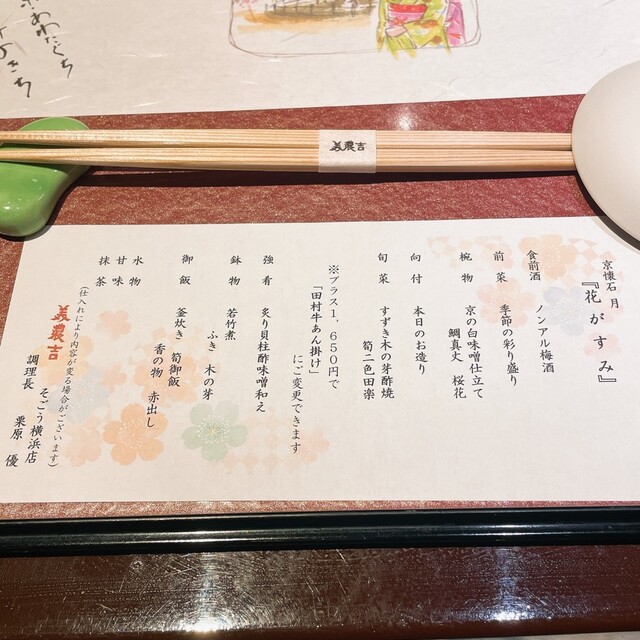 おあわたぐち
美濃吉
京懐石 月
『花がすみ』
食前酒 ノンアル梅酒
前菜 季節の彩り盛り
椀物 京の白味噌仕立て
鯛真丈 桜花
向付 本日のお造り
旬菜 すずき木の芽酢焼
筍二色田楽
※プラス1,650円で
「田村牛あん掛け」
にご変更できます
強肴 炙り貝柱酢味噌和え
鉢物 若竹煮
ふき 木の芽
御飯 釜炊き 筍御飯
香の物 赤出し
水物
甘味
抹茶
(仕入れにより内容が変る場合がございます)
美濃吉
そごう横浜店
調理長 栗原 優